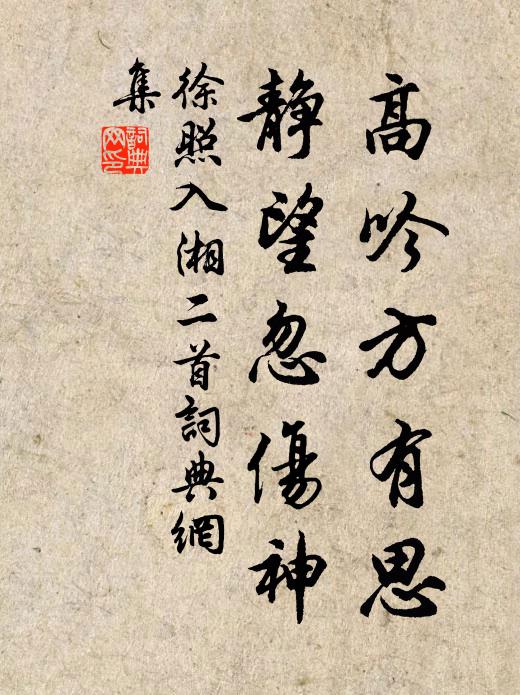 高吟方有思
静望忽傷神
徐照入湘二首詞典網
集
詞典
网印